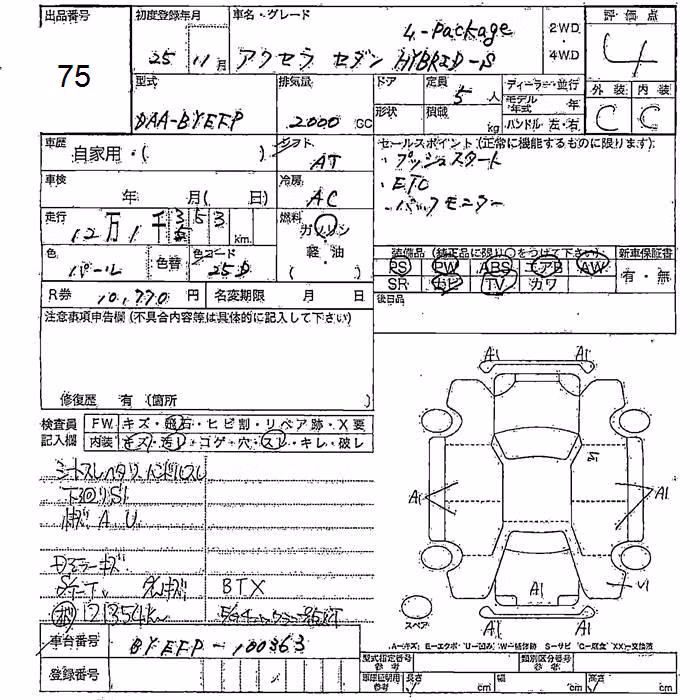 出品番号 初度登録年月 車名・グレード 評価点
75
25 11月
L-Package
アクセラ セダン HYBRID-S
2WD・4WD
4
型式 排気量 ドア 定員 ディーラー・並行 外装 内装
DAA-BYEFP 2000 CC 5人
形状 積載 kg モデル年式 年 ハンドル 左・右
C C
車歴 シフト
自家用・( ) AT
セールスポイント(正常に機能するものに限ります)
・プッシュスタート
・ETC
・バックモニター
車検 年 月( 日) 冷房 AC
走行 12万1千353 km 燃料 ガソリン 軽油 ( )
色 パール 色替 色コード 25D
装備品(純正品に限り○をつけて下さい) 新車保証書
PS PW ABS エアB AW 有・無
SR ナビ TV カワ
R券 10,770円 名変期限 月 日
後日品
注意事項申告欄(不具合内容等は具体的に記入して下さい)
修復歴 有 (箇所 )
検査員記入欄
FW キズ・飛石・ヒビ割・リペア跡・X要
内装 キズ・汚レ・コゲ・穴・スレ・キレ・破レ
シートスレヘタリ ハンドルスレ
下回りS1
ホイール A U
Dミラーキズ
BTX
121354km
A1 A1
A1
A1
A1
U1
A1 A1
スペア
A-キズ E-エクボ U-凹み W-補修跡 S-サビ C-腐食 XX-交換済
車台番号 BYEFP-100363
登録番号
型式指定番号 参考 類別区分番号 参考
車庫証明用 参考 長さ cm 幅 cm 高さ cm